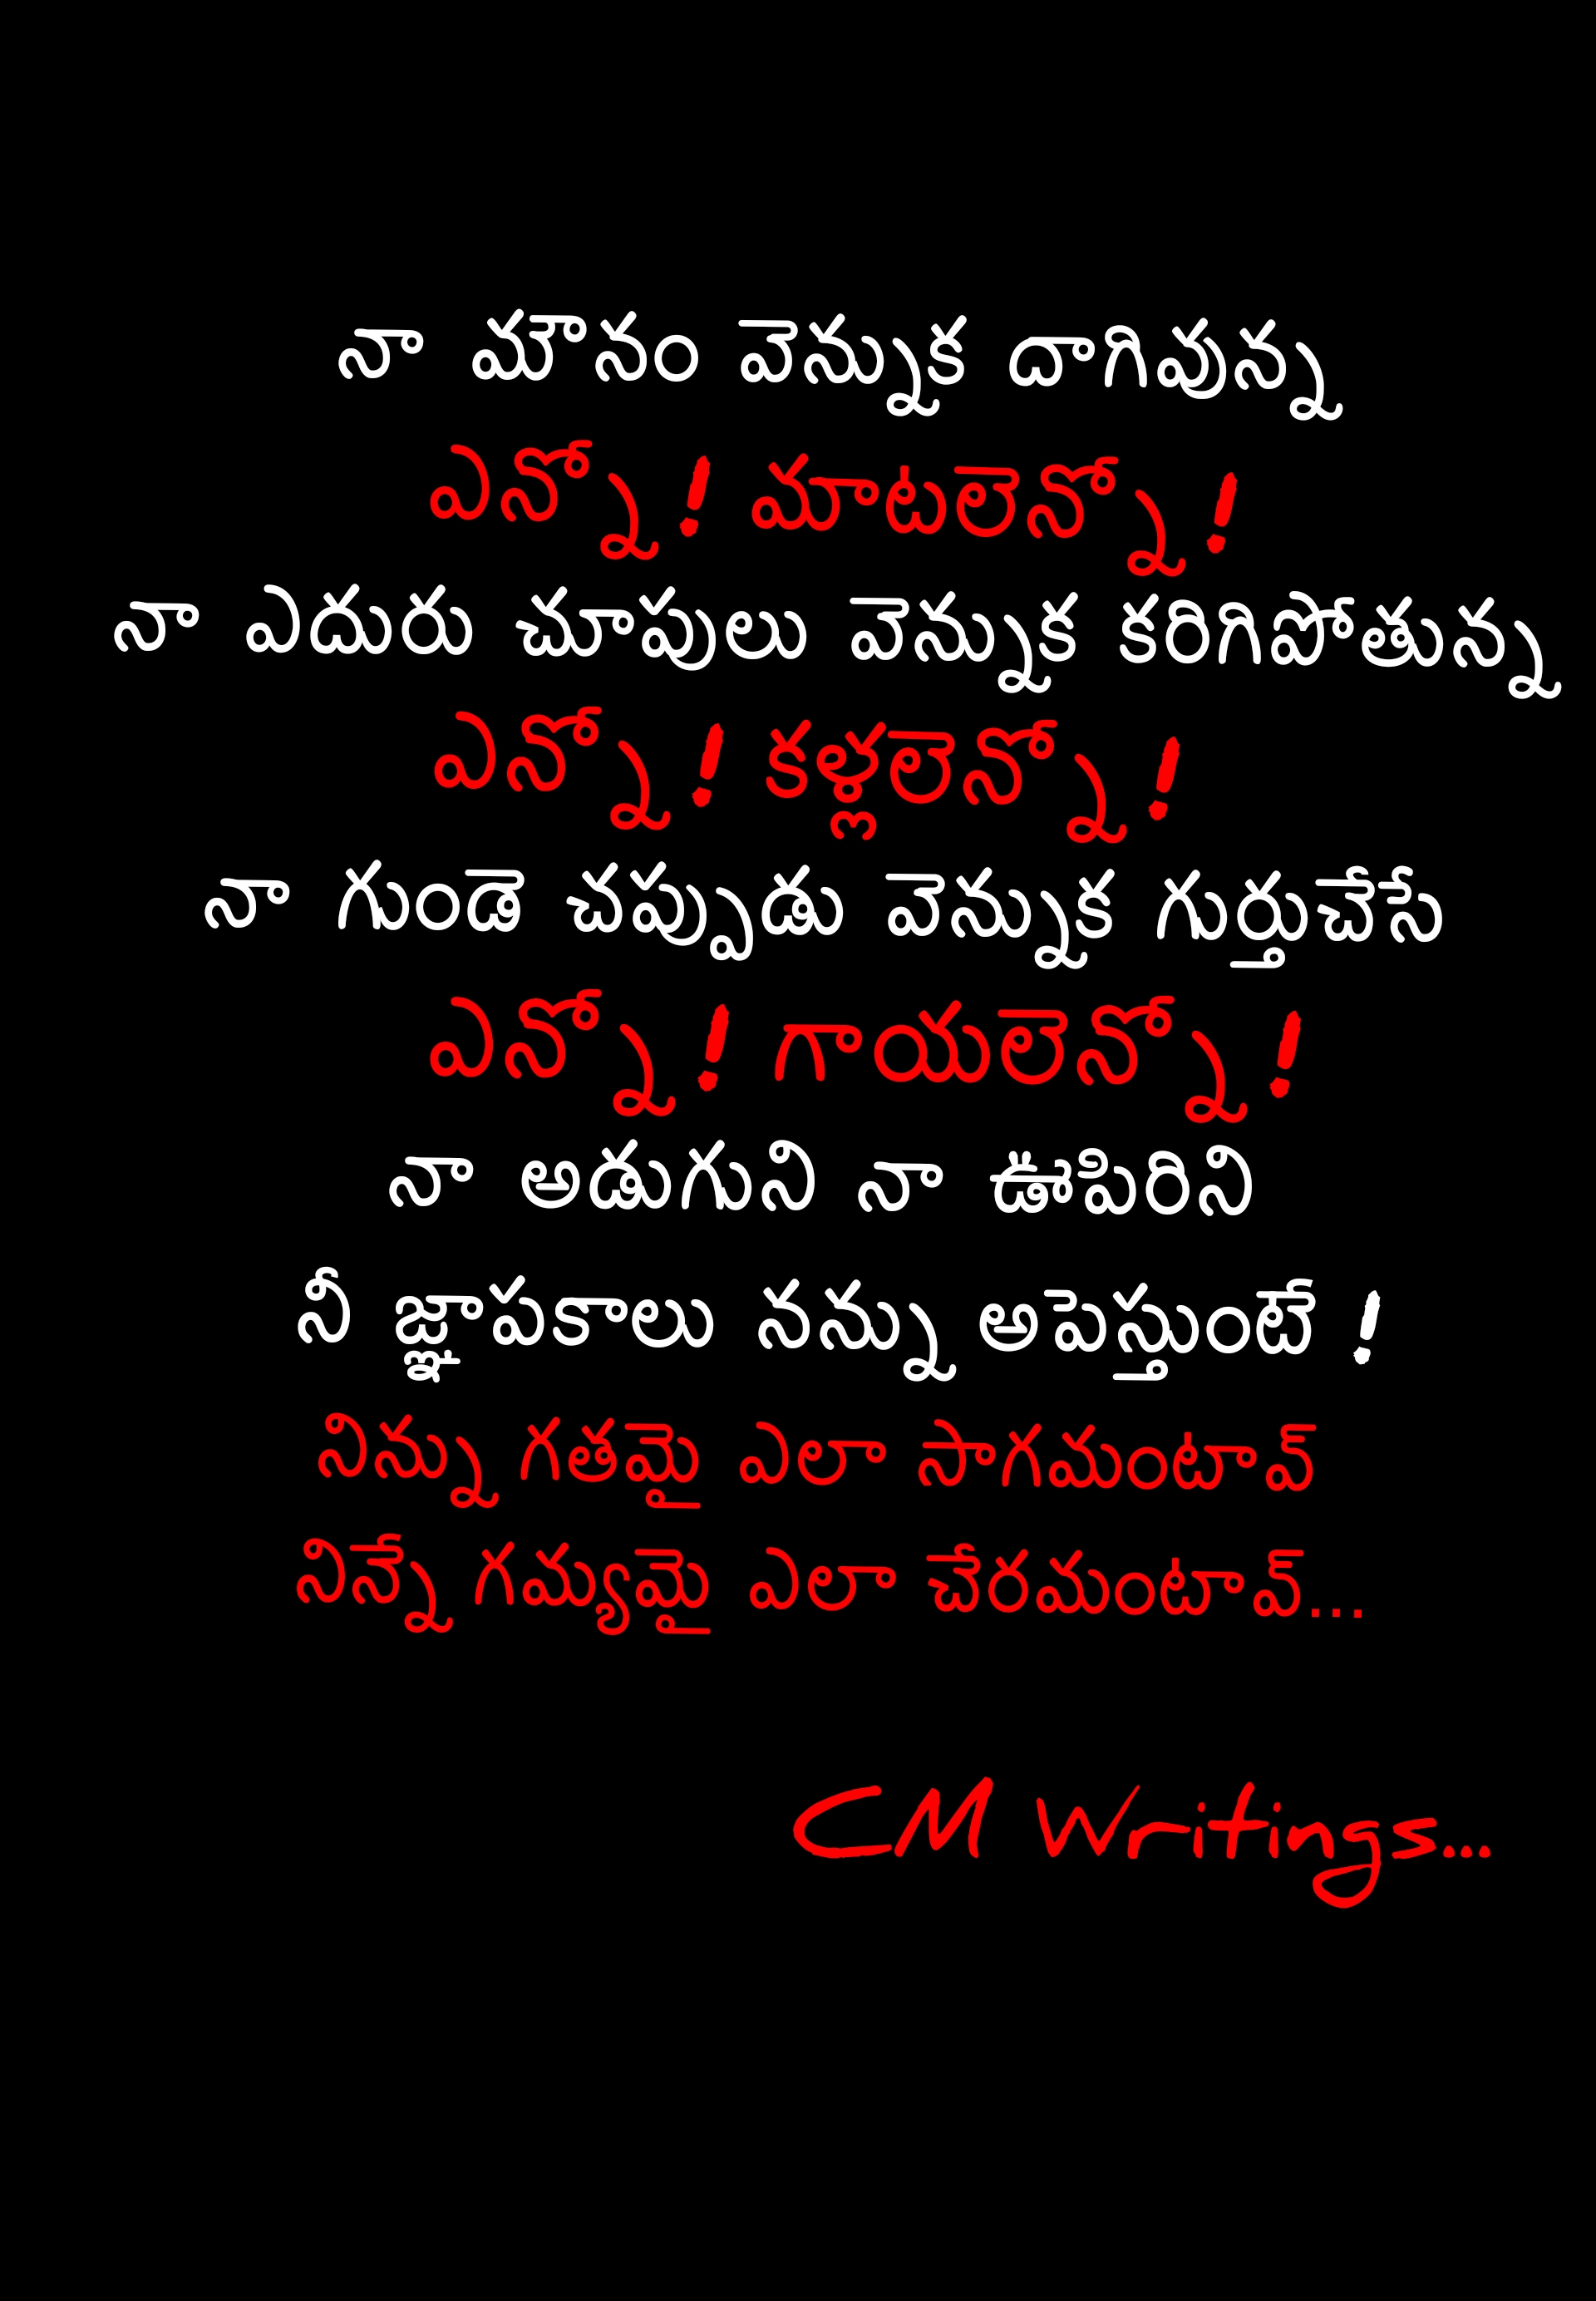 నా మౌనం వెన్నుక దాగివున్న
ఎన్నో! మాటలెన్నో!
నా ఎదురు చూపులు వెన్నుక కరిగిపోతున్న
ఎన్నో! కళ్లలెన్నో!
నా గుండె చప్పుడు వెన్నుక గుర్తుచేసే
ఎన్నో! గాయలెన్నో!
నా అడుగుని నా ఊపిరిని
నీ జ్ఞాపకాలు నన్ను అపెస్తుంటే!
నిన్ను గతమై ఎలా సాగమంటావ్
నిన్నే గమ్యమై ఎలా చేరమంటావ్...
CM Writings...